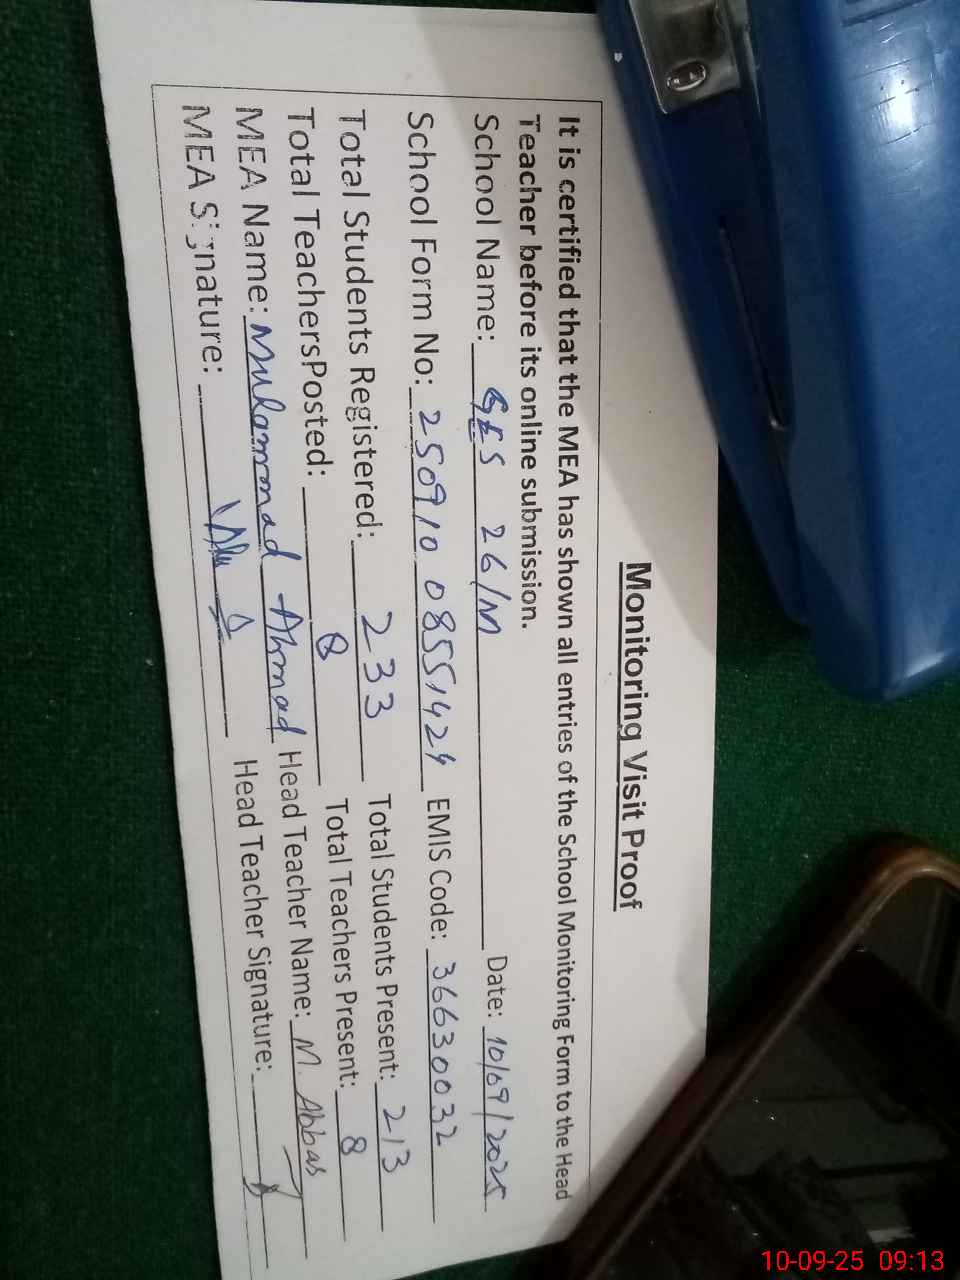 Monitoring Visit Proof
It is certified that the MEA has shown all entries of the School Monitoring Form to the Head
Teacher before its online submission.
School Name: GES 26/M Date: 10/09/2025
School Form No: 25091008551424 EMIS Code: 36630032
Total Students Registered: 233 Total Students Present: 213
Total TeachersPosted: 8 Total Teachers Present: 8
MEA Name: Muhammad Ahmad Head Teacher Name: M. Abbas
MEA Signature: Head Teacher Signature:
10-09-25 09:13